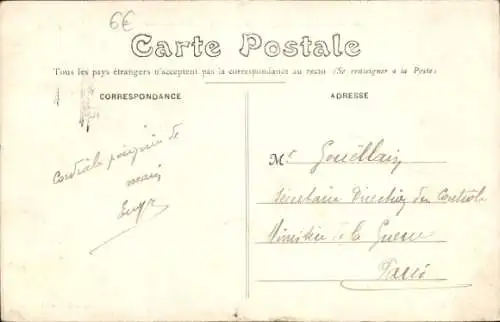 6€
Carte Postale
Tous les pays étrangers n'acceptent pas la correspondance au recto (Se renseigner à la Poste)
CORRESPONDANCE
ADRESSE
Cordiale poignée de
main
Mr Gouëllain
Secrétaire Direction du Contrôle
Ministère de la Guerre
Paris